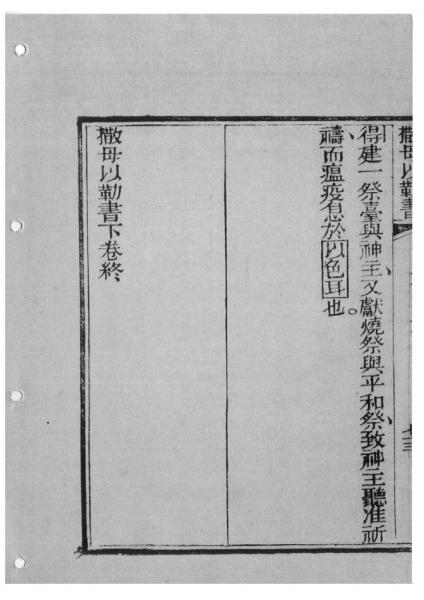 撒母以勒書
得建一祭臺與神主、又獻燒祭與平和祭、致神主聽准祈
禱、而瘟疫息於以色耳也。
撒母以勒書下卷終